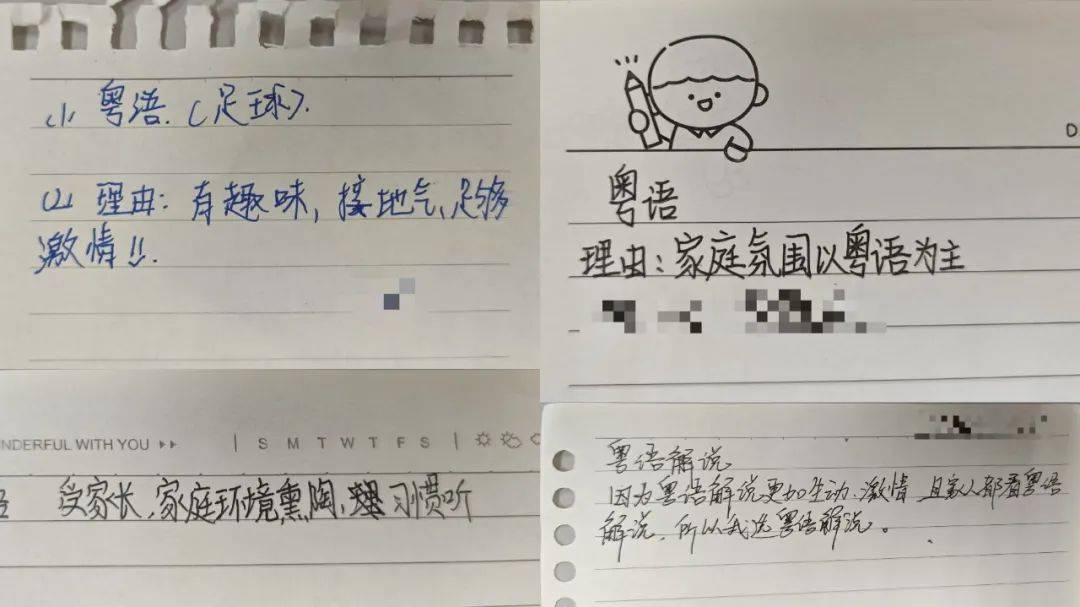 (1) 粤语.(足球).
(2) 理由:有趣味,接地气,足够
激情!!.
粤语
理由:家庭氛围以粤语为主
NDERFUL WITH YOU
S M T W T F S
受家长,家庭环境熏陶,习惯听
粤语解说
因为粤语解说更加生动、激情,且家人都看粤语
解说,所以我选粤语解说。